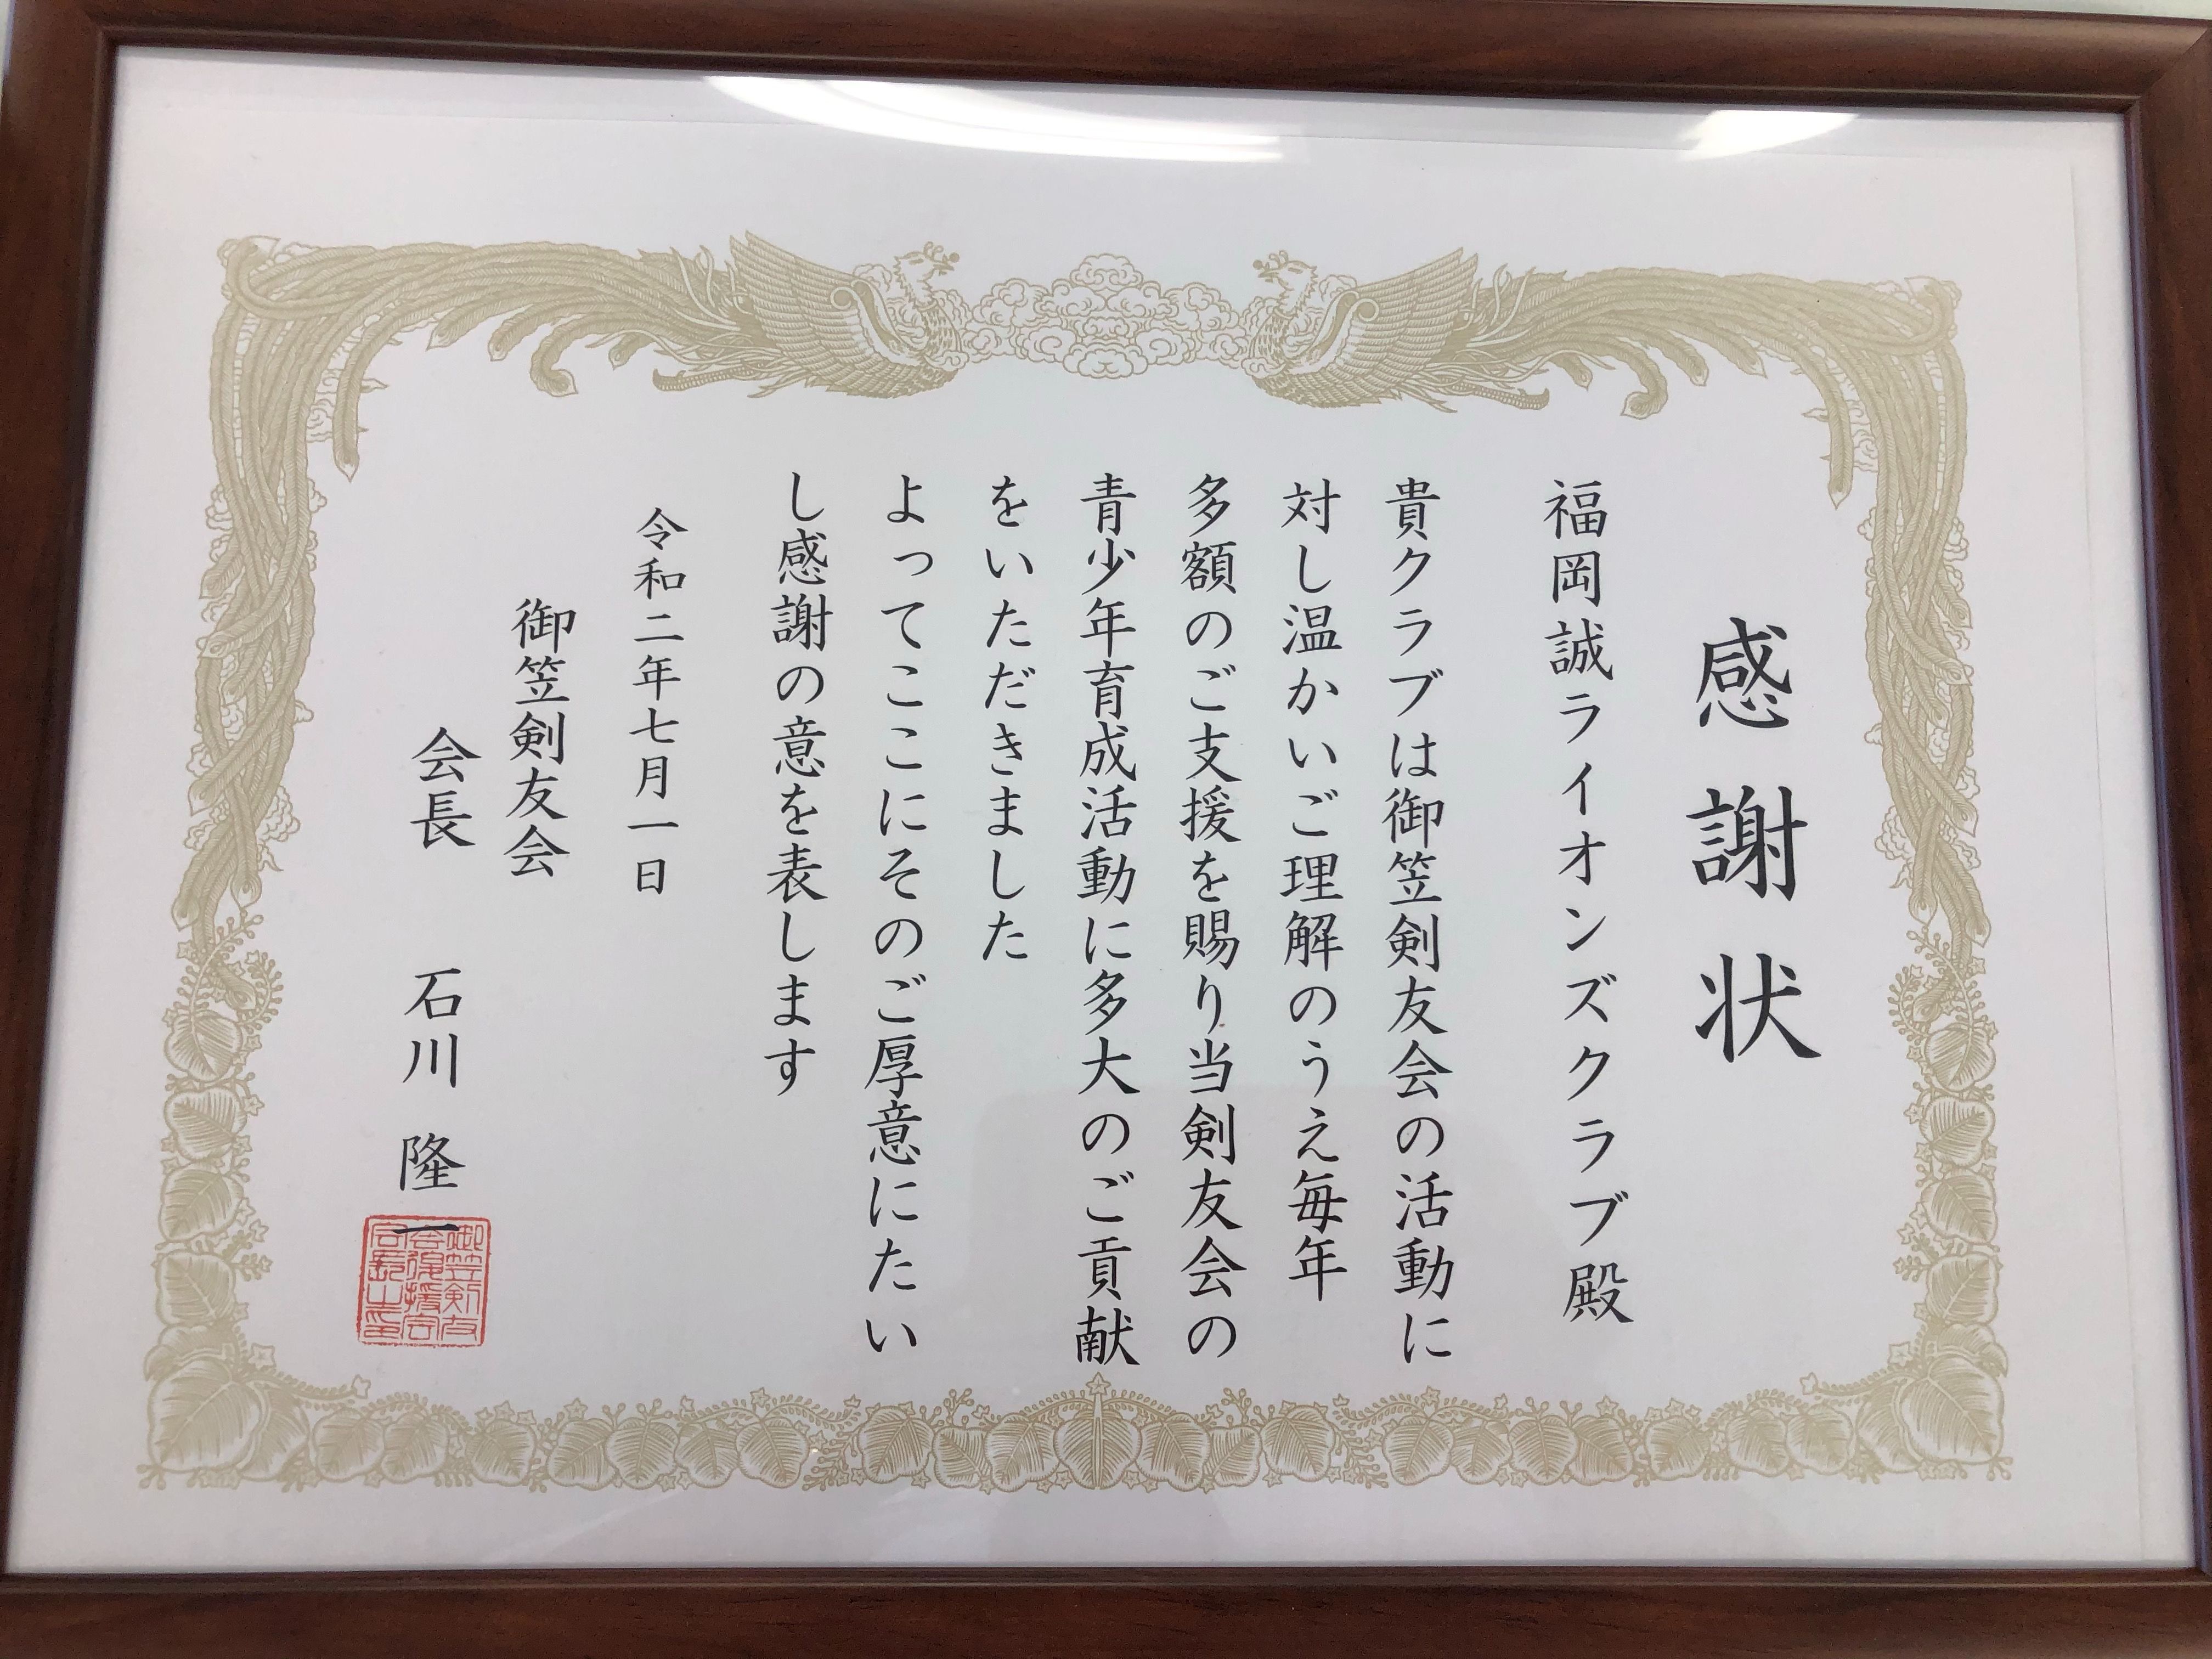 感謝状
福岡誠ライオンズクラブ殿
貴クラブは御笠剣友会の活動に
対し温かいご理解のうえ毎年
多額のご支援を賜り当剣友会の
青少年育成活動に多大のご貢献
をいただきました
よってここにそのご厚意にたい
し感謝の意を表します
令和二年七月一日
御笠剣友会
会長 石川 隆一
御笠剣友
会後援会
会長之印